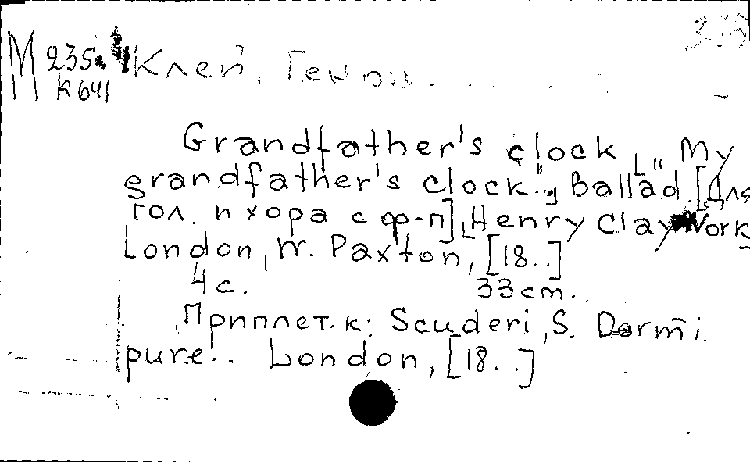 М 235 Клей, Генри
К 641
Grandfather's clock [„My
grandfather's clock"] Ballad [Для
гол. и хора с ф-п] [Henry Clay Work
London, W. Paxton, [18..]
4 с. 33 cm.
Приплет. к: Scuderi, S. Dormi
pure.. London, [18..]